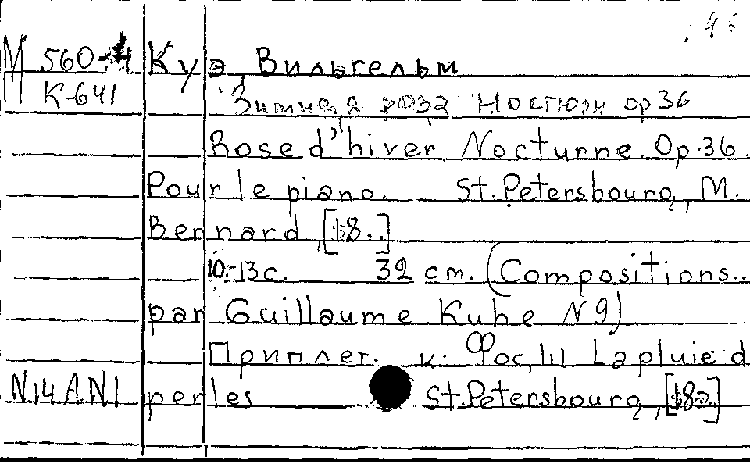 М 560-4 Куэ Вильгельм
К-641 Зимняя роза Ноктюрн ор 36
Rose d'hiver Nocturne. Op. 36.
Pour le piano. St. Petersbourg, M.
Bernard, [18..]
10-13 с. 32 cm. (Compositions..
par Guillaume Kuhe N 9)
Приплет. к: La pluie d
N14AN1 perles St. Petersbourg, [18..]